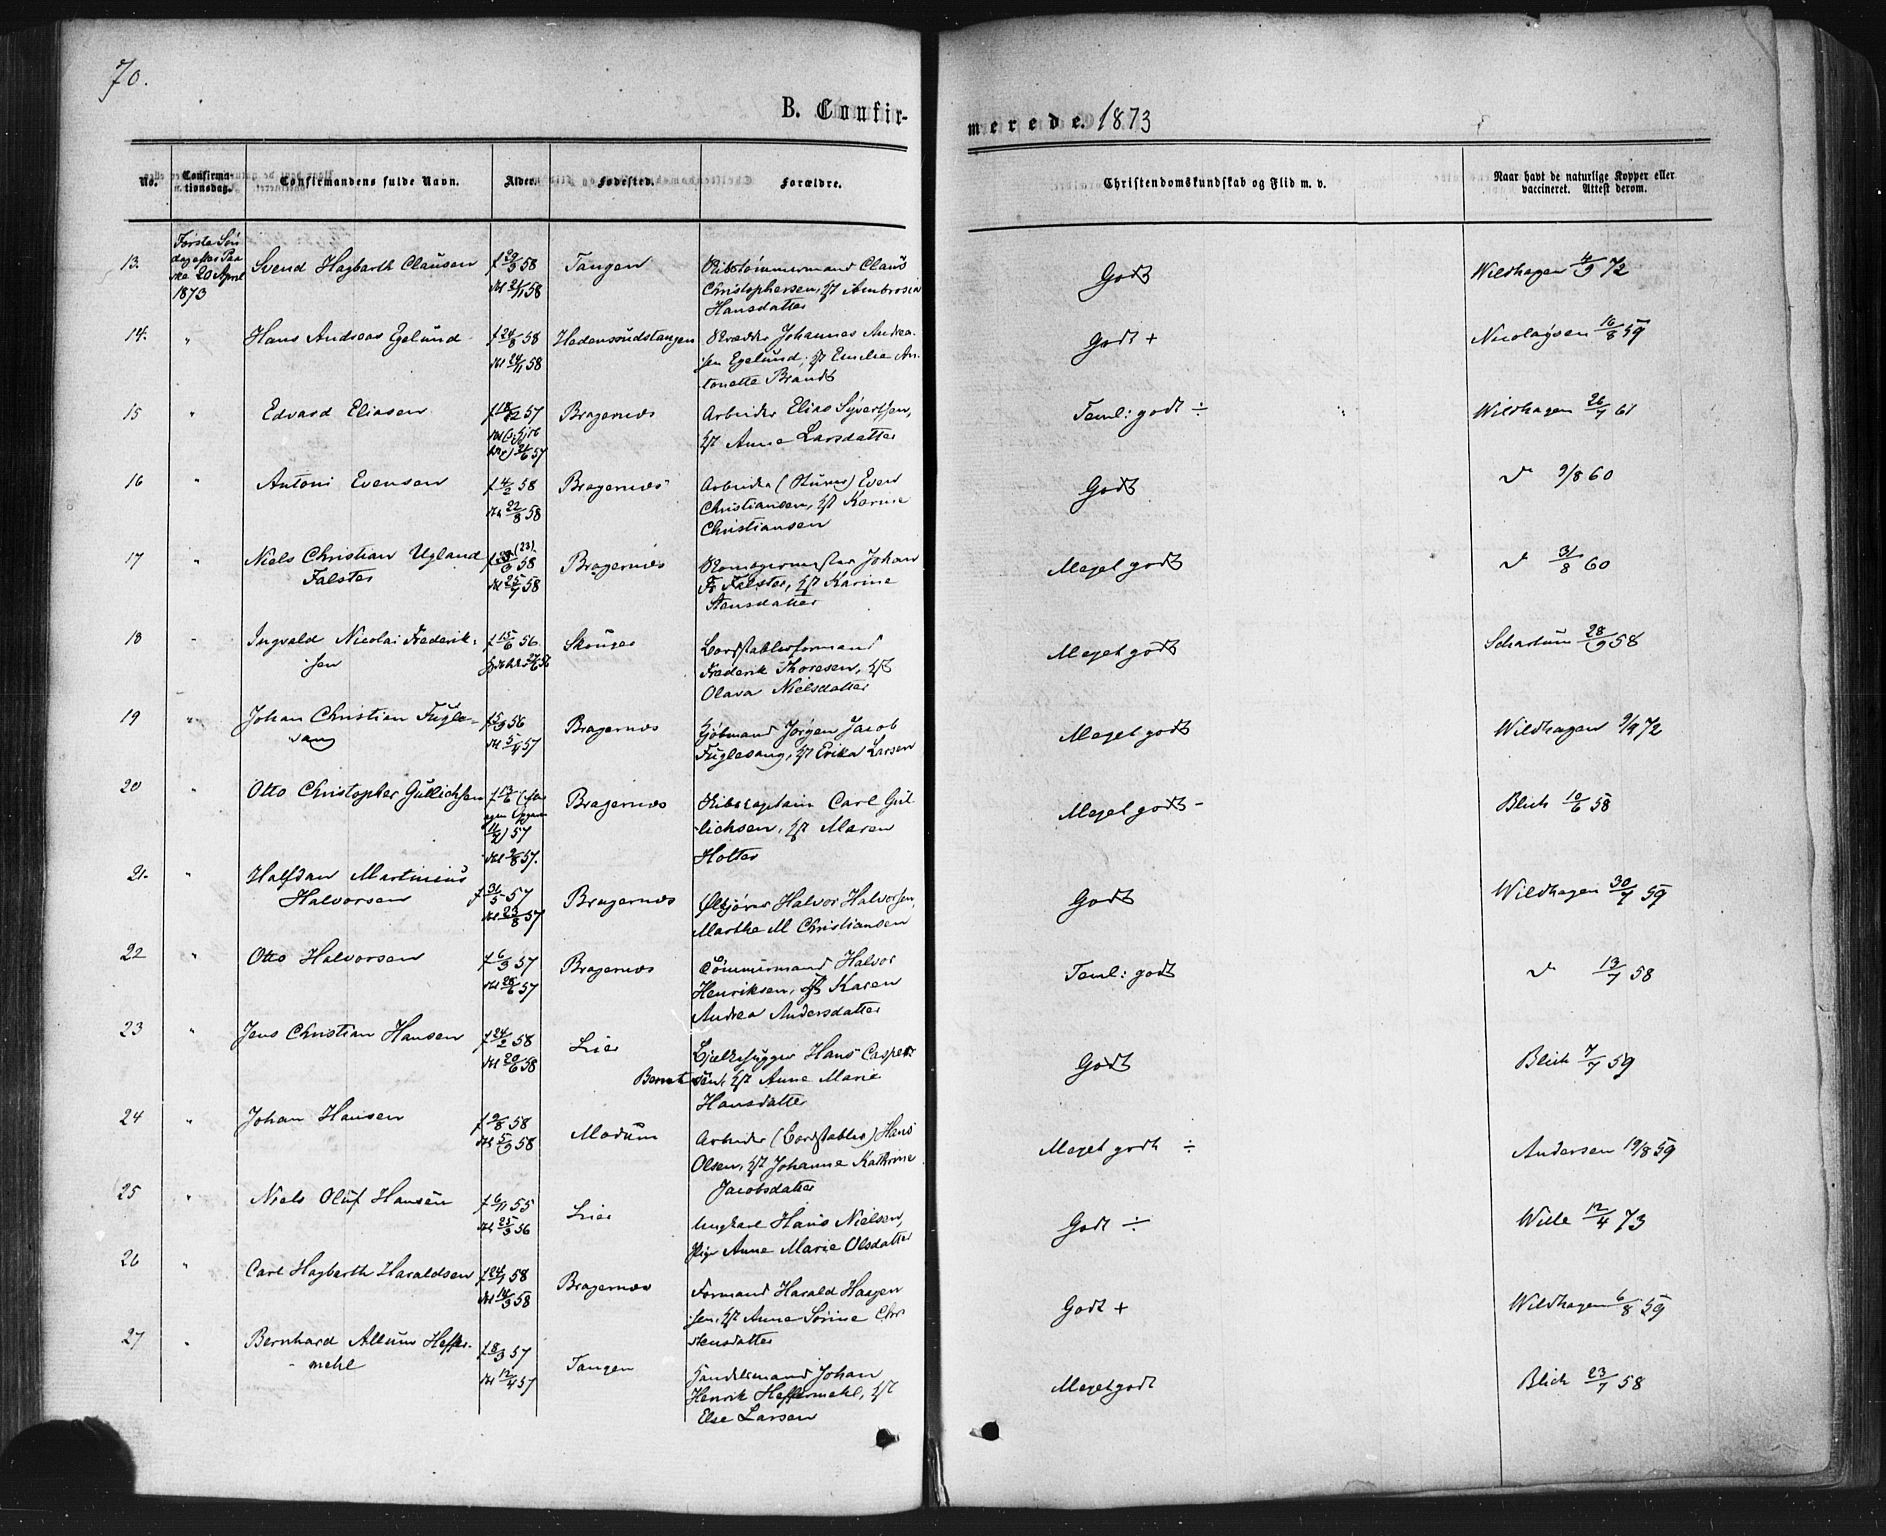 70.
B. Confir-
merede. 1873
No.
Confirma-
tionsdag.
Confirmandens fulde Navn.
Alder.
Fødested.
Forældre.
Christendomskundskab og Flid m. v.
Naar havt de naturlige Kopper eller
vaccineret. Attest derom.
13. Første Søn
dag efter Paa
ske 20 April
1873
Svend Hagbarth Clausen
f 29/3 58
Tangen
Skibstømmermand Claus
Christophersen, Ambrosia
Hansdatter
Godt
Wildhagen 4/9 72
14. " Hans Andreas Egelund
f 24/8 58
24/11 58
Johannes Andrea-
sen Egelund, Emilie An-
tonette Brandt
Godt +
Nicolaysen 16/8 59
15 " Edvard Eliasen
f 18/12 57
Bragernes
Arbeider Elias Syvertsen,
Anne Larsdatter
Teml: godt ÷
Wildhagen 26/7 61
16 " Antoni Evensen
f 4/2 58
22/8 58
Bragernes
Arbeider Even
Christiansen, Karine
Christiansen
Godt
9/8 60
17 " Niels Christian Ugland
Falster
25/7 58
Bragernes
Johan
Fr Falster, Karine
Meget godt
31/8 60
18 Ingvald Nicolai Frederik-
sen
f 15/6 56
Skouger
Bordstablerformand
Frederik Thoresen,
Olava Nielsdatter
Meget godt
Schartum 28/9 58
19 " Johan Christian Fugle-
sang
f 5/9 56
5/4 57
Bragernes
Kjøbmand Jørgen Jacob
Fuglesang, Erika Larsen
Meget godt
Wildhagen 9/9 72
20 " Otto Christopher Gullichsen
f 13/6
57
9/8 57.
Bragernes
Skibscaptain Carl Gul-
lichsen, Maren
Holter
Meget godt -
Blich 10/6 58
21. " Halfdan Martinius
Halvorsen
f 31/5 57
23/8 57
Bragernes
Halvor Halvorsen,
Marthe M Christiansen
Godt
Wildhagen 30/7 59
22 " Otto Halvorsen
f 6/3 57
57
Bragernes
Tømmermand Halvor
Henriksen, Karen
Andrea Andersdatter
Teml: godt
13/7 58
23 " Jens Christian Hansen
f 24/2 58
20/6 58
Lier
Bjelkehugger Hans
Anne Marie
Hansdatter
Godt
Blich 7/7 59
24 " Johan Hansen
f 9/8 58
5/9 58
Modum
Arbeider (Bordstabler) Hans
Olsen, Johanne Kathrine
Jacobsdatter
Meget godt ÷
Andersen 19/8 59
25 " Niels Oluf Hansen
f 6/11 55
25/3 56
Lier
Ungkarl Hans Nielsen,
Pige Anne Marie Olsdatter
Godt ÷
Wille 12/4 73
26 " Carl Hagbarth Haraldsen
f 24/1 58
14/3 58
Bragernes
Formand Harald Hagen
sen, Anne Sørine Chri
stensdatter
Godt +
Wildhagen 6/8 59
27 " Bernhard Allum Heffer-
mehl
f 8/3 57
12/4 57
Tangen
Handelsmand Johan
Henrik Heffermehl,
Else Larsen
Meget godt
Blich 23/7 58